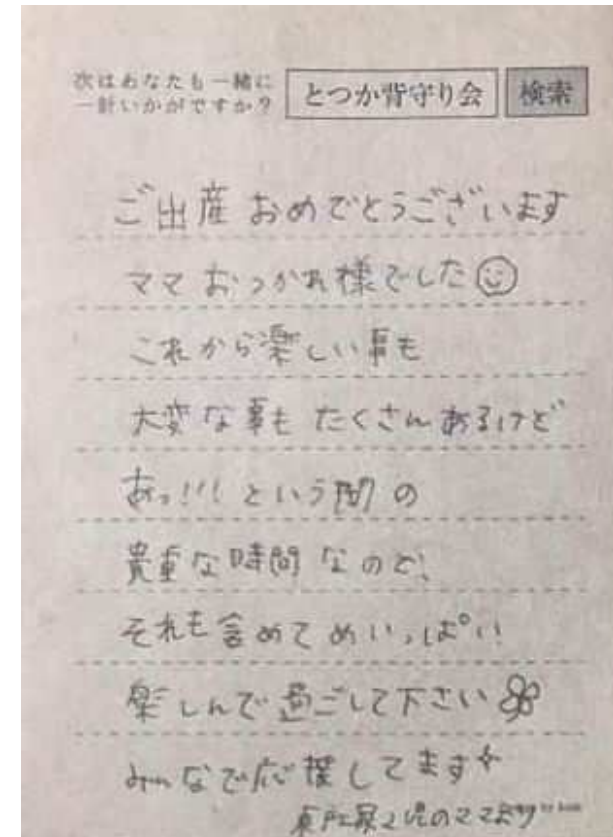 次はあなたも一緒に
一針いかがですか？
とつか背守り会 検索
ご出産おめでとうございます
ママおつかれ様でした
これから楽しい事も
大変な事もたくさんあるけど
あっ!!!という間の
貴重な時間なので、
それも含めてめいっぱい
楽しんで過ごして下さい
みんなで応援してます
2児のママより